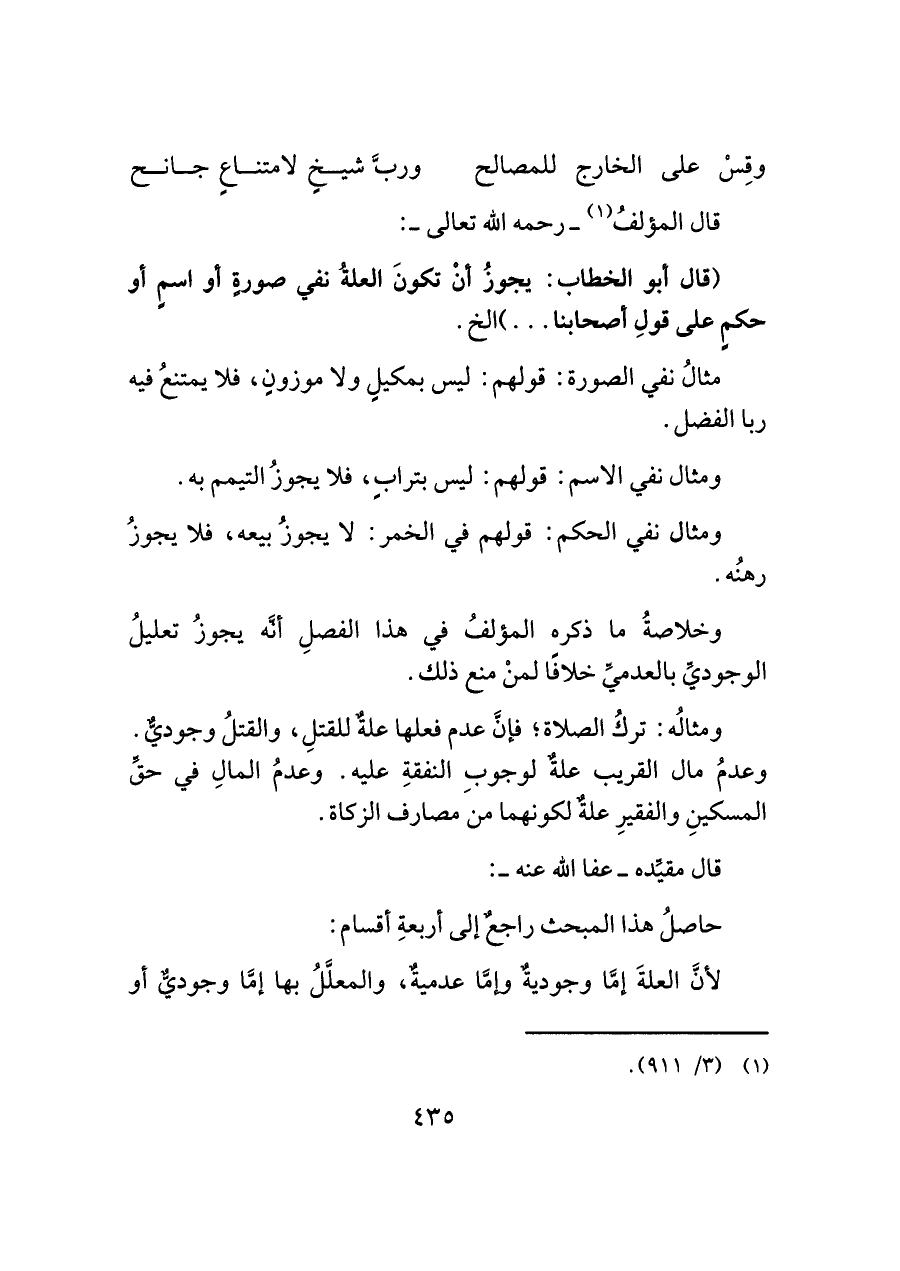 وقِسْ على الخارج للمصالح وربَّ شيـخٍ لامتنـاعٍ جـانـح
قال المؤلفُ(١) ـ رحمه الله تعالى ـ:
(قال أبو الخطاب: يجوزُ أنْ تكونَ العلةُ نفي صورةٍ أو اسمٍ أو
حكمٍ على قولِ أصحابنا. . .)الخ.
مثالُ نفي الصورة: قولهم: ليس بمكيلٍ ولا موزونٍ، فلا يمتنعُ فيه
ربا الفضل.
ومثال نفي الاسم: قولهم: ليس بترابٍ، فلا يجوزُ التيمم به.
ومثال نفي الحكم: قولهم في الخمر: لا يجوزُ بيعه، فلا يجوزُ
رهنُه.
وخلاصةُ ما ذكره المؤلفُ في هذا الفصلِ أنَّه يجوزُ تعليلُ
الوجوديِّ بالعدميِّ خلافًا لمنْ منع ذلك.
ومثالُه: تركُ الصلاة؛ فإنَّ عدم فعلها علةٌ للقتلِ، والقتلُ وجوديٌّ.
وعدمُ مال القريب علةٌ لوجوبِ النفقةِ عليه. وعدمُ المالِ في حقِّ
المسكينِ والفقيرِ علةٌ لكونهما من مصارف الزكاة.
قال مقيِّده ـ عفا الله عنه ـ:
حاصلُ هذا المبحث راجعٌ إلى أربعةِ أقسام:
لأنَّ العلةَ إمَّا وجوديةٌ وإمَّا عدميةٌ، والمعلَّلُ بها إمَّا وجوديٌّ أو
(١) (٣/ ٩١١).
٤٣٥